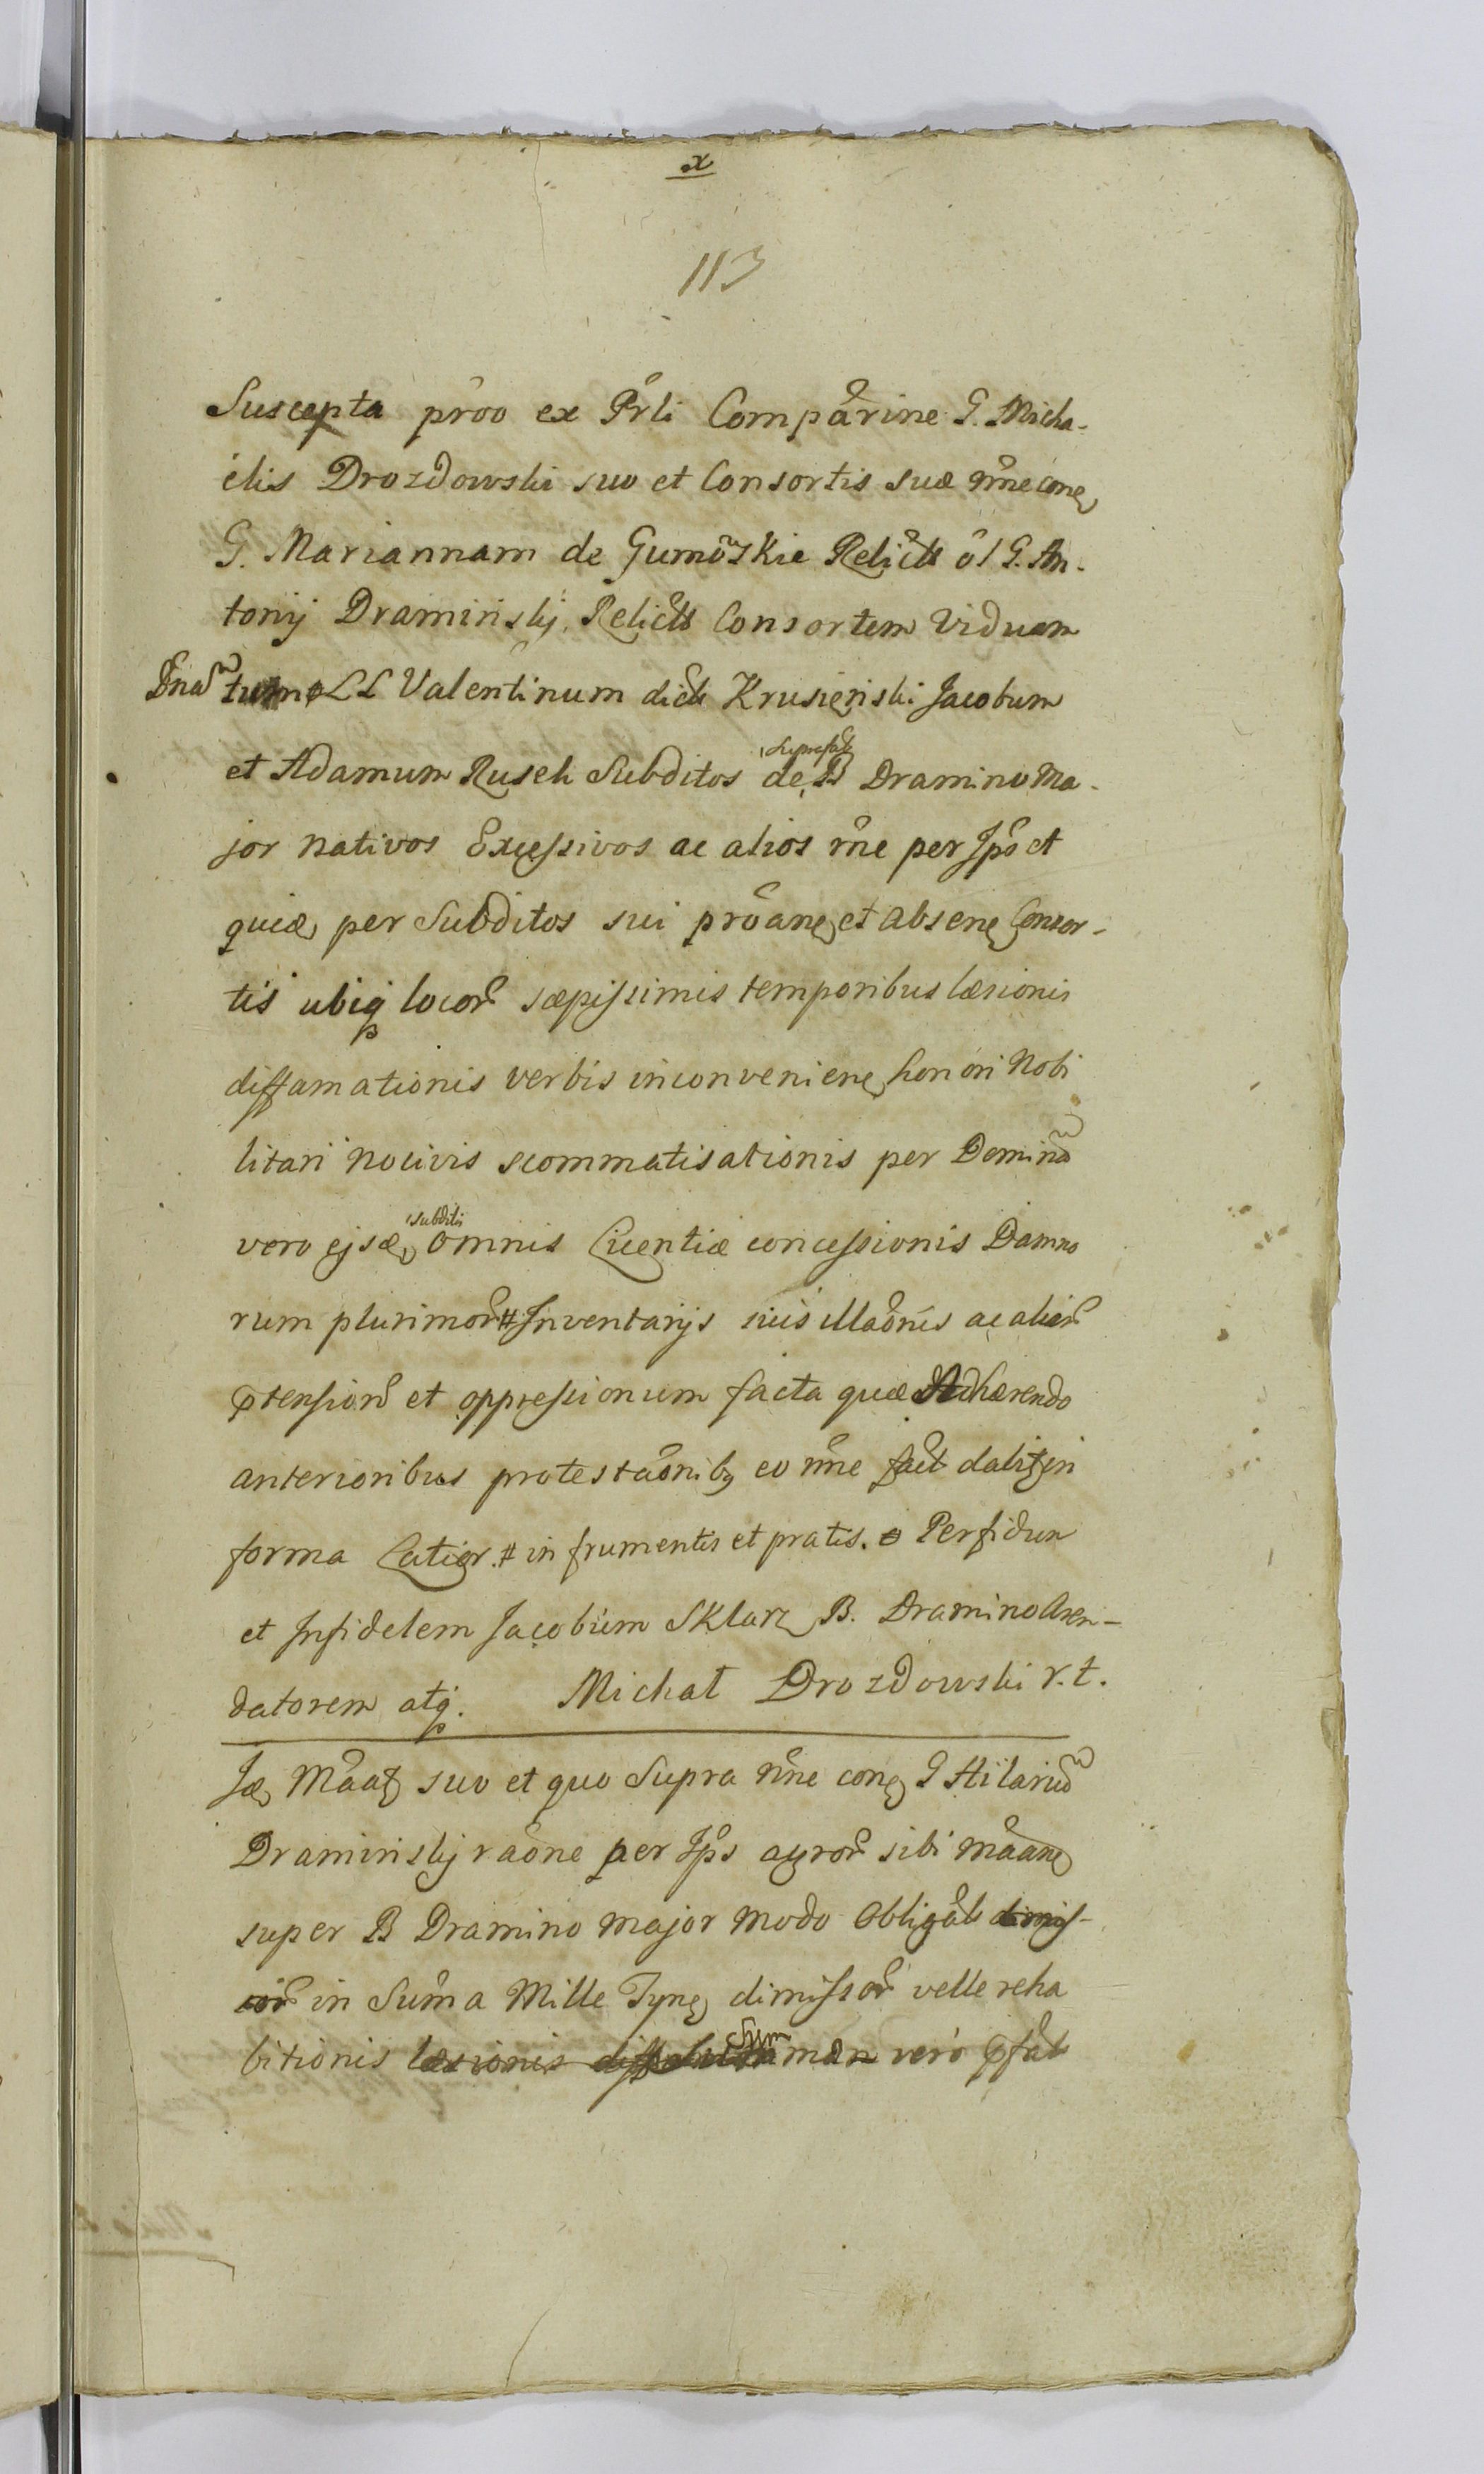 x
113
Suscepta prõo ex Prli Compârine G. Micha-
elis Drozdowski suo et Consortis suæ nñe cone
G. Mariannam de Gumoŵskie Relicts ol G. An-
tonij Dramiński, Relicts Consortem Viduam
Dnam tum LL Valentinum dicts Krusieński Jacobum
et Adamum Rusek Subditos de B Dramino Ma-
jor nativos Excessivos ac alios rñe per Ips et
quia per Subditos sui prôane et absene Consor-
tis ubiq locor sæpissimis temporibus læsionis
diffamationis verbis inconveniene honori Nobi
litari nocivis scommatisationis per Domina
vero ejsæ subditi omnis Licentiæ concessionis Damno
rum plurimor # Inventarijs suis illaônis ac alior
ptension et oppressionum facta quæ Adhærendo
anterioribus protestaônibq eo nñe fact dabitq in
forma Latior. # in frumentis et pratis. Perfidum
et Infidelem Jacobum Sklarz B. Dramino Aren-
datorem atq. Michał Drozdowski r.t.
Jæ Mâatq suo et quo Supra nñe cone G Hilarium
Draminskij raône per Ips agror sibi mâane
super B Dramino major modo Obligats dimis-
sor in Suma Mille Tyne dimissor velle reha
bitionis læsionis Sum man vero pfats